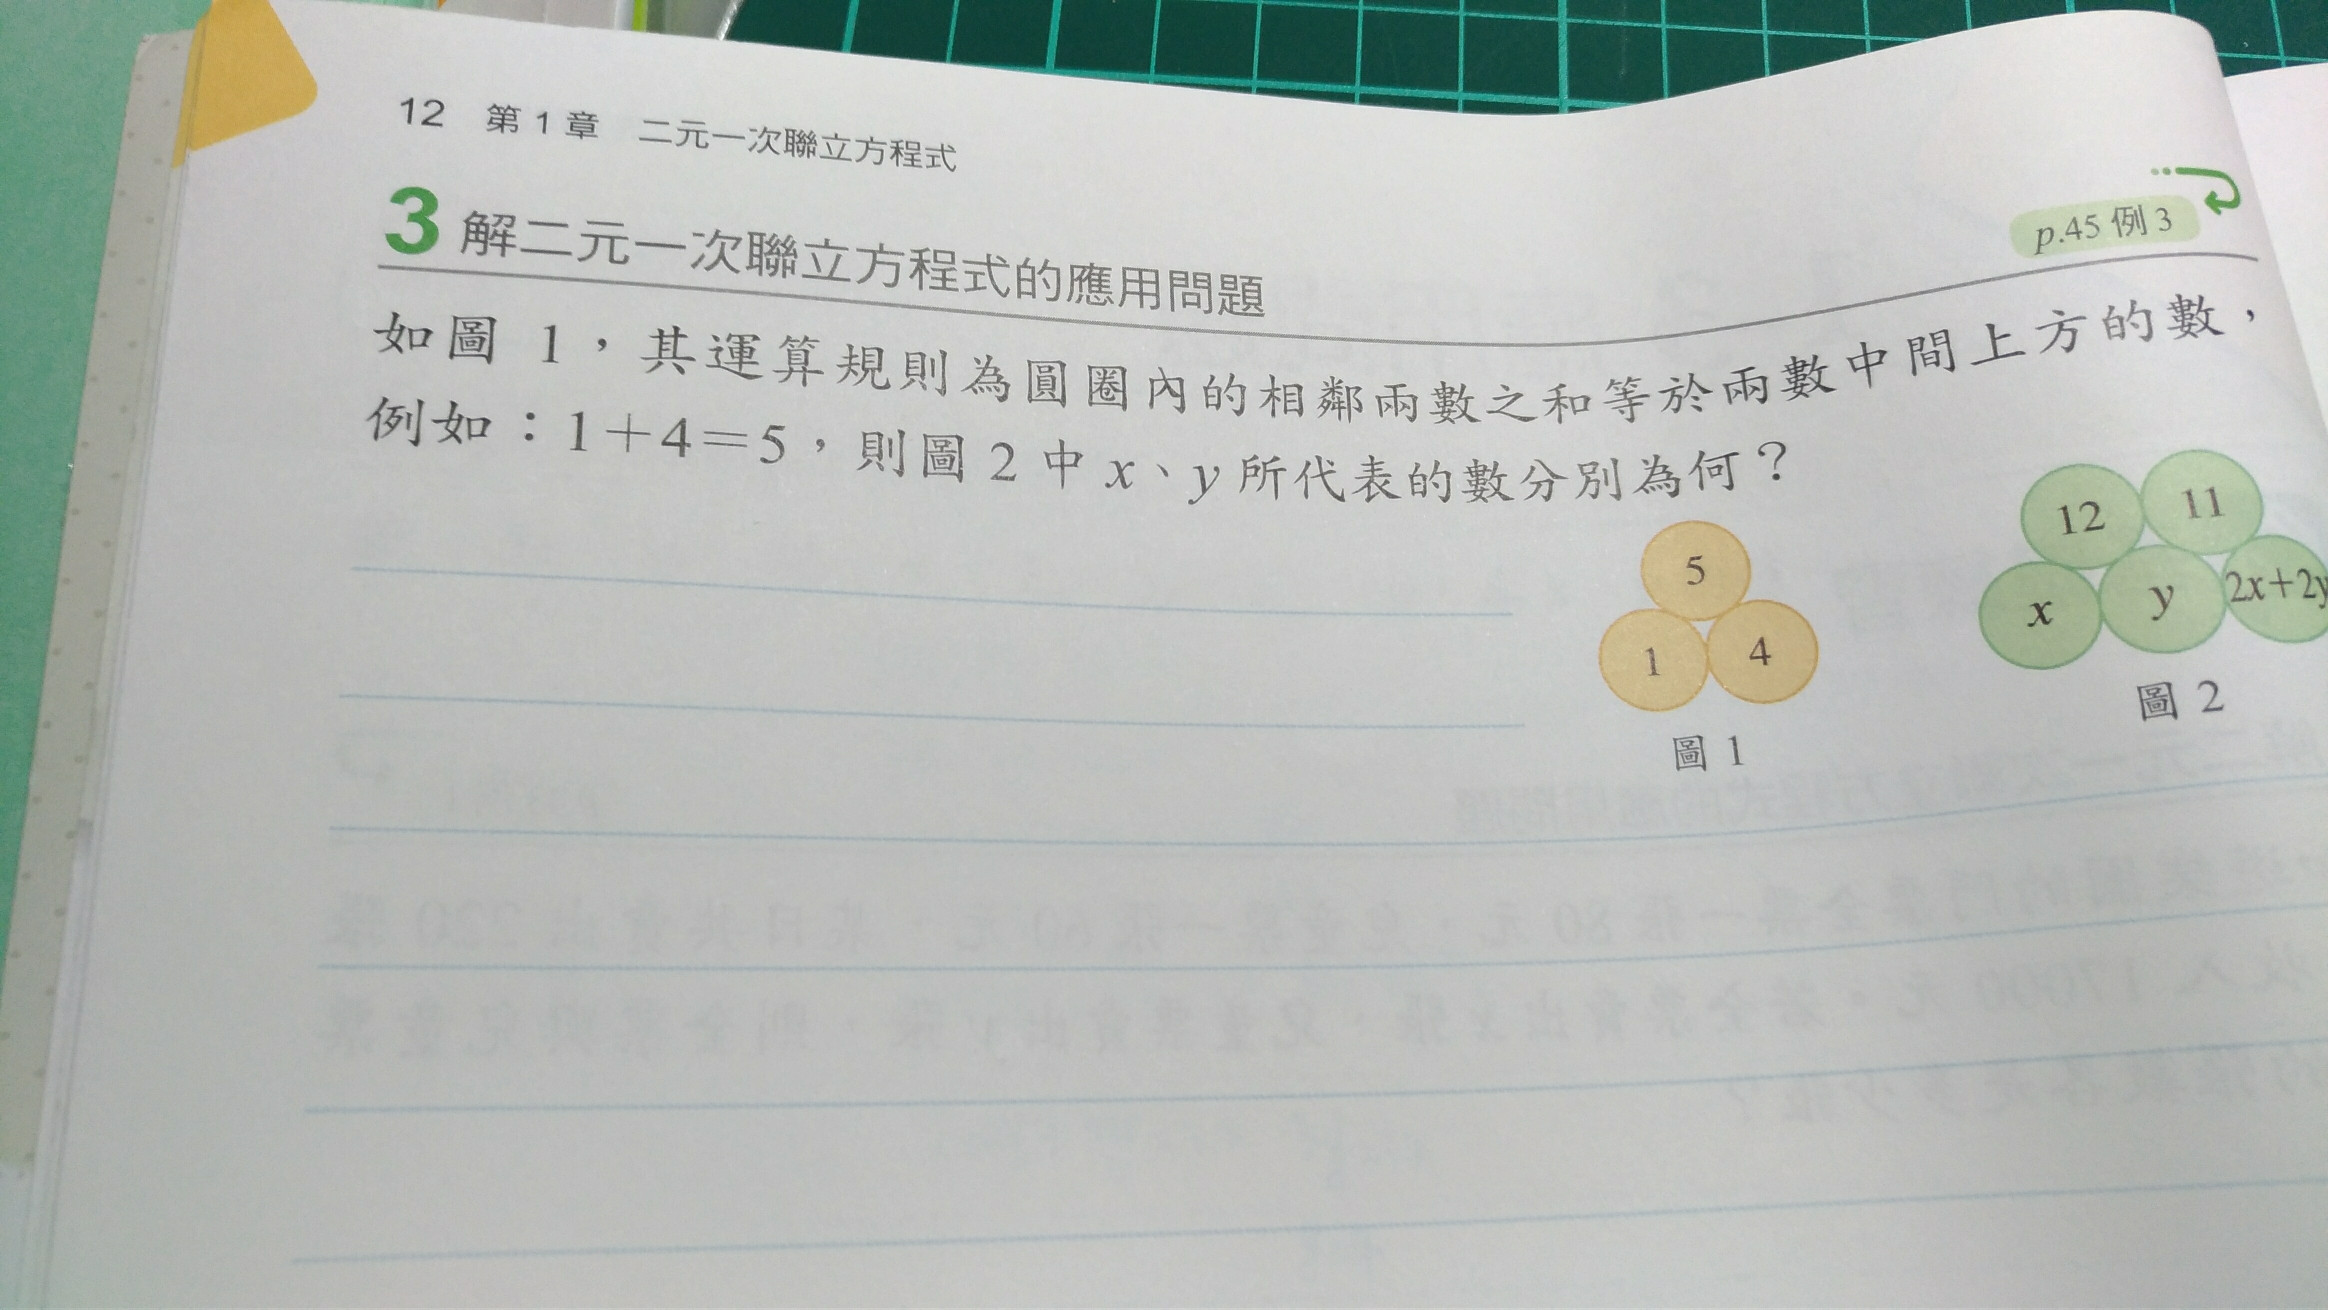 12 第1章 二元一次聯立方程式
3 解二元一次聯立方程式的應用問題
p.45 例 3
如圖 1，其運算規則為圓圈內的相鄰兩數之和等於兩數中間上方的數，
例如：1＋4＝5，則圖 2 中 x、y 所代表的數分別為何？
5
1 4
圖 1
12 11
x y 2x+2y
圖 2